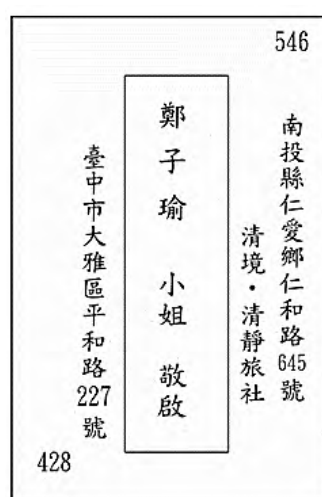 546
南投縣仁愛鄉仁和路645號
清境・清靜旅社
鄭子瑜 小姐 敬啟
臺中市大雅區平和路227號
428